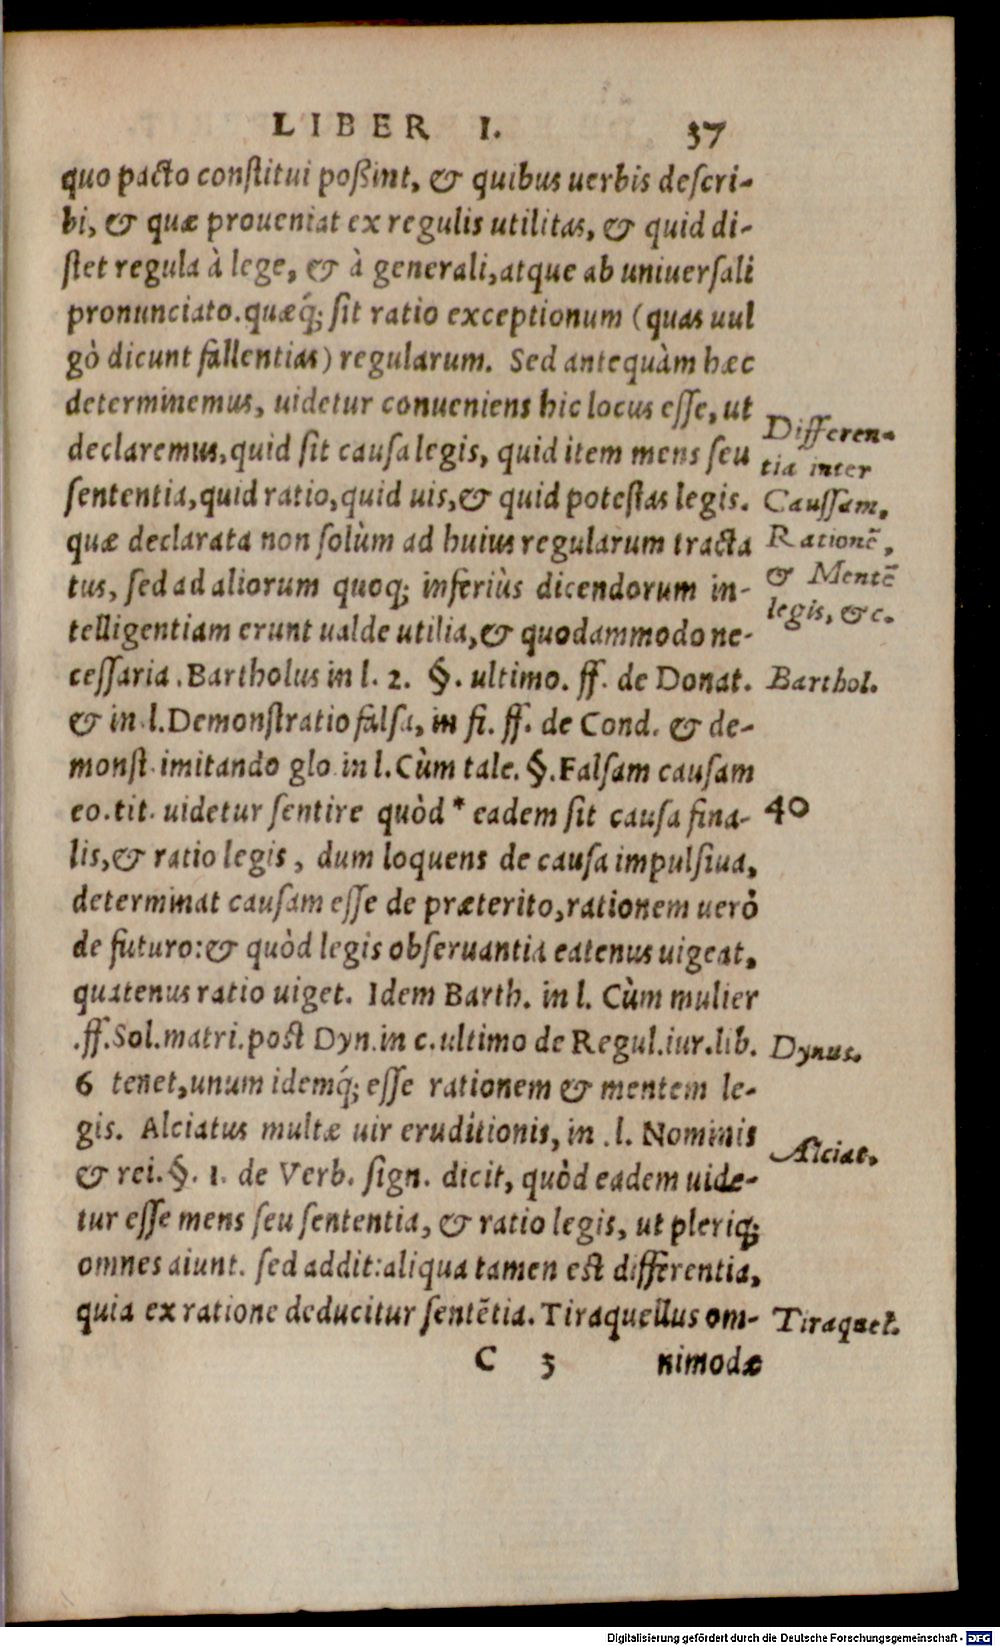 LIBER I. 37
quo pacto conſtitui poßint, & quibus uerbis deſcri-
bi, & quæ proueniat ex regulis utilitas, & quid di-
ſtet regula à lege, & à generali, atque ab uniuerſali
pronunciato. quæq́; ſit ratio exceptionum (quas uul
gò dicunt fallentias) regularum. Sed antequàm hæc
determinemus, uidetur conueniens hic locus eſſe, ut
declaremus, quid ſit cauſa legis, quid item mens ſeu
ſententia, quid ratio, quid uis, & quid poteſtas legis.
quæ declarata non ſolùm ad huius regularum tracta
tus, ſed ad aliorum quoq; inferiùs dicendorum in-
telligentiam erunt ualde utilia, & quodammodo ne-
ceſſaria. Bartholus in l. 2. §. ultimo. ff. de Donat.
& in l. Demonſtratio falſa, in fi. ff. de Cond. & de-
monst. imitando glo. in l. Cùm tale. §. Falſam cauſam
eo. tit. uidetur ſentire quòd * eadem ſit cauſa fina-
lis, & ratio legis, dum loquens de cauſa impulſiua,
determinat cauſam eſſe de præterito, rationem uerò
de futuro: & quòd legis obſeruantia eatenus uigeat,
quatenus ratio uiget. Idem Barth. in l. Cùm mulier
.ff. Sol. matri. post Dyn. in c. ultimo de Regul. iur. lib.
6 tenet, unum idemq́; eſſe rationem & mentem le-
gis. Alciatus multæ uir eruditionis, in .l. Nominis
& rei. §. 1. de Verb. ſign. dicit, quòd eadem uide-
tur eſſe mens ſeu ſententia, & ratio legis, ut pleriq;
omnes aiunt. ſed addit: aliqua tamen est differentia,
quia ex ratione deducitur ſentẽtia. Tiraquellus om-
C 3 nimodæ
Differen-
tia inter
Cauſſam,
Rationẽ,
& Mentẽ
legis, &c.
Barthol.
40
Dynus.
Alciat.
Tiraquel.
Digitalisierung gefördert durch die Deutsche Forschungsgemeinschaft - DFG